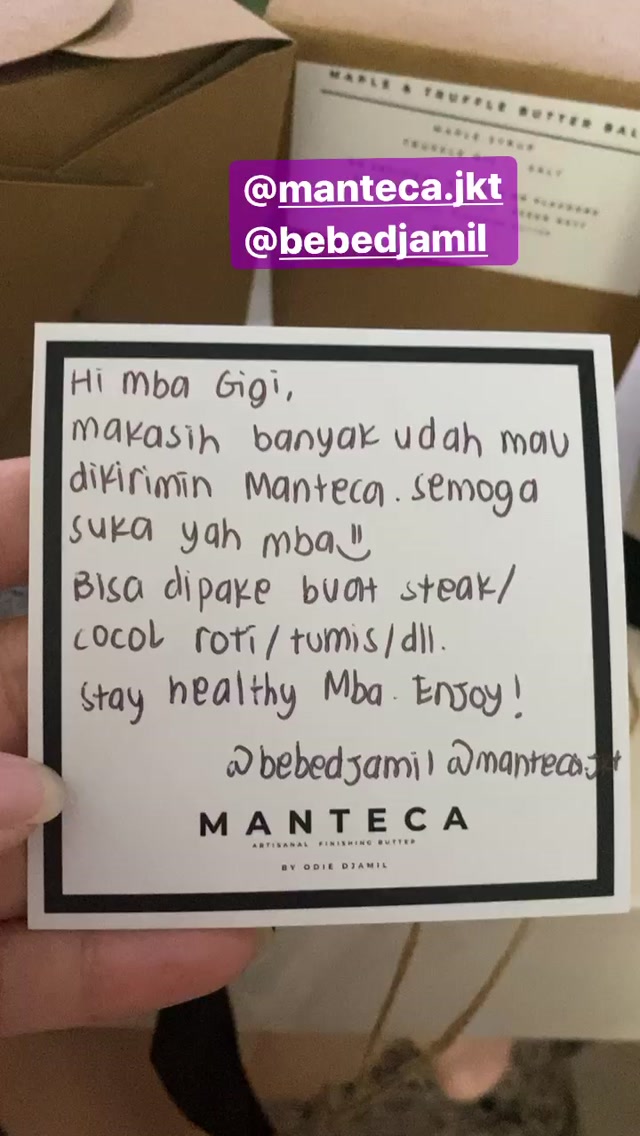 MAPLE & TRUFFLE BUTTER
MAPLE SYRUP
@manteca.jkt
@bebedjamil
Hi mba Gigi,
makasih banyak udah mau
dikirimin Manteca. semoga
suka yah mba
Bisa dipake buat steak/
cocol roti/tumis/dll.
stay healthy Mba. Enjoy!
@bebedjamil @manteca.jkt
MANTECA
ARTISANAL FINISHING BUTTER
BY ODIE DJAMIL